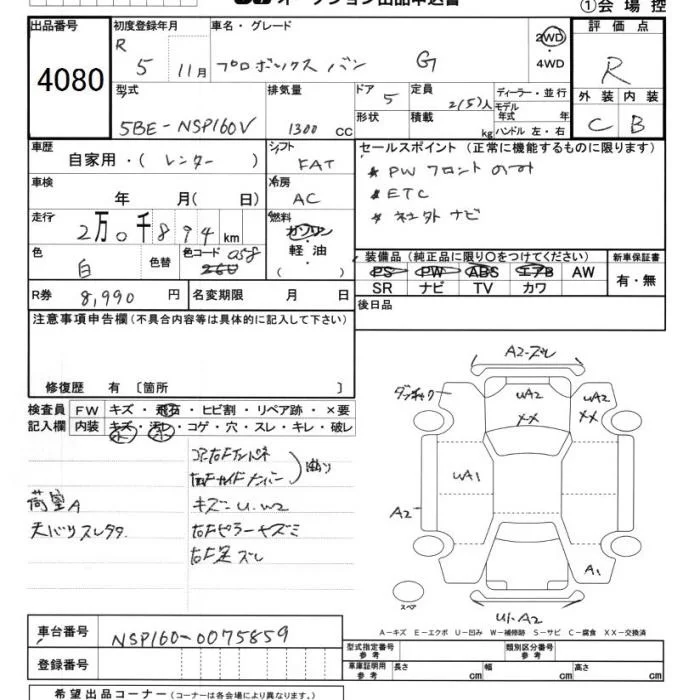 ①会場控
出品番号
4080
初度登録年月
R 5 11月
車名・グレード
プロボックス バン G
2WD
・
4WD
評価点
R
外装 内装
C B
型式
5BE-NSP160V
排気量
1300 CC
ドア 5
形状
定員 2(5)人
積載 kg
ディーラー・並行
モデル年式 年
ハンドル 左・右
車歴
自家用・(レンター)
シフト
FAT
車検
年 月( 日)
冷房
AC
走行
2万0千894km
燃料
ガソリン
・
軽・油
( )
色
白
色替
色コード 058
R券 8,990 円
名変期限 月 日
セールスポイント(正常に機能するものに限ります)
* PW フロントのみ
* ETC
* 社外ナビ
装備品(純正品に限り○をつけてください)
PS PW ABS エアB AW
SR ナビ TV カワ
新車保証書
有・無
後日品
注意事項申告欄(不具合内容等は具体的に記入して下さい)
修復歴 有 〔箇所 〕
検査員記入欄
FW キズ・飛石・ヒビ割・リペア跡・×要
内装 キズ・汚れ・コゲ・穴・スレ・キレ・破レ
荷室A
天バリスレ
キズ-U.W2
右Fピラーキズミ
右F足ズレ
A2-ズレ
UA2
XX
UA2
XX
UA1
A2
A1
スペア
U1.A2
A-キズ E-エクボ U-凹み W-補修跡 S-サビ C-腐食 XX-交換済
車台番号 NSP160-0075859
登録番号
型式指定番号 参考
類別区分番号 参考
車庫証明用 参考
長さ cm
幅 cm
高さ cm
希望出品コーナー(コーナーは各会場により異なります。)